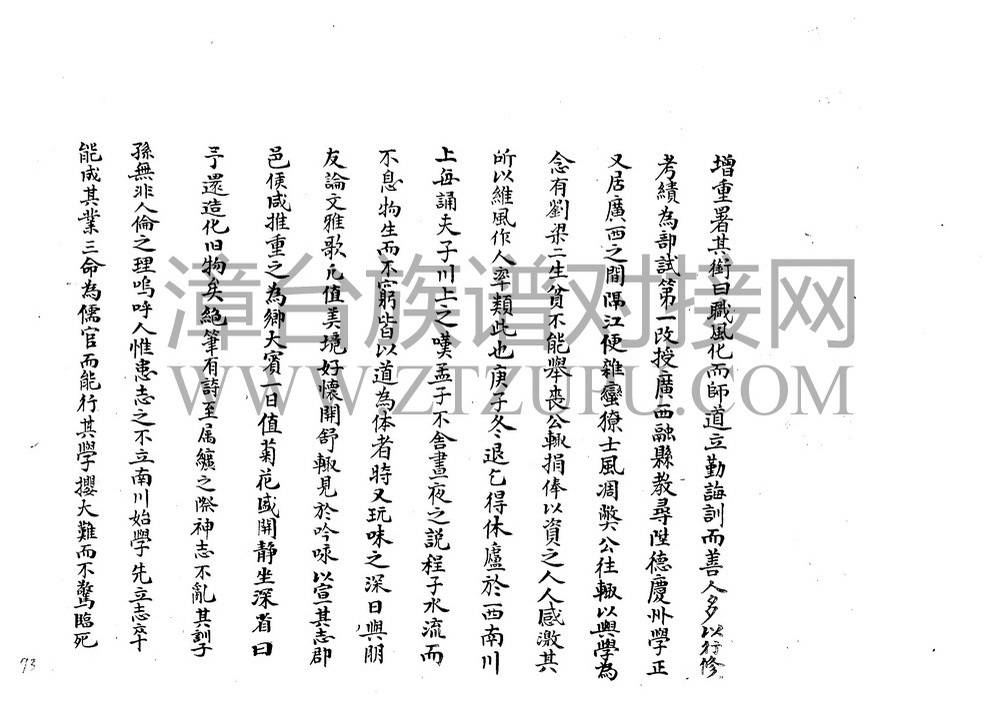 增重署其銜曰職風化而師道立勤誨訓而善人多以行修
考績為部試第一改授廣西融縣教尋陞德慶州學正
又居廣西之間隔江便雜蠻獠士風凋獘公往輙以興學為
念有劉梁二生貧不能舉喪公輙捐俸以資之人人感激其
所以維風作人率類此也庚子冬退乞得休廬於西南川
上每誦夫子川上之嘆孟子不舍晝夜之説程子水流而
不息物生而不窮皆以道為体者時又玩味之深日與朋
友論文雅歌凡值美境好懷開舒輙見於吟咏以宣其志郡
邑侯咸推重之為鄉大賓一日值菊花盛開静坐深省曰
予還造化旧物矣絶筆有詩至属纊之際神志不亂其訓子
孫無非人倫之理嗚呼人惟患志之不立南川始學先立志卒
能成其業三命為儒官而能行其學攖大難而不驚臨死
73
漳台族谱对接网
WWW.ZTZUPU.COM